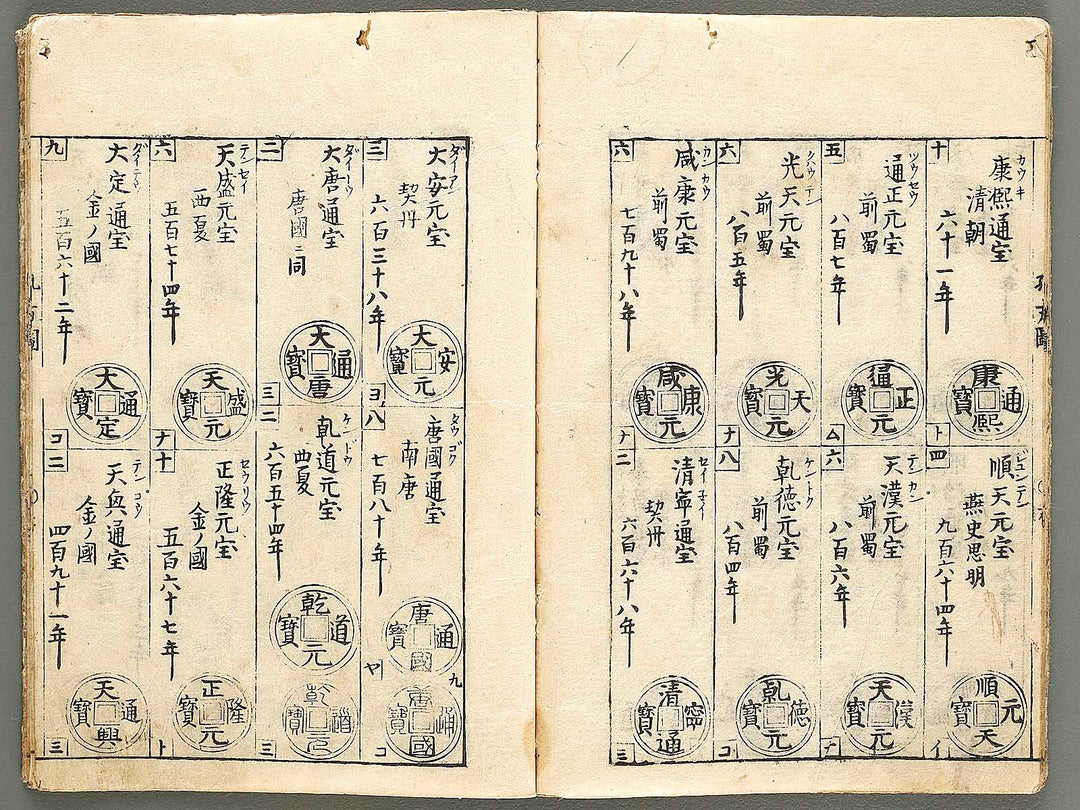 十
康熙通宝
カウキ
清朝
六十一年
康熙通寳
ト
四
順天元宝
ジュンテン
燕史思明
九百六十四年
順天元寳
イ
五
通正元宝
ツウセウ
前蜀
八百七年
通正元寳
ム
六
天漢元宝
テンカン
前蜀
八百六年
天漢元寳
ナ
六
光天元宝
クハウテン
前蜀
八百五年
光天元寳
ナ
八
乾徳元宝
ケントク
前蜀
八百四年
乾徳元寳
コ
六
咸康元宝
カンカウ
前蜀
七百九十八年
咸康元寳
ナ
二
清寧通宝
セイネイ
契丹
六百六十八年
清寧通寳
三
三
大安元宝
ダイアン
契丹
六百三十八年
大安元寳
ヨ
八
唐國通宝
タウゴク
南唐
七百八十年
唐國通寳
ヤ
九
唐國通寳
コ
二
大唐通宝
唐國ニ同
大唐通寳
三
二
乾道元宝
ケンドウ
西夏
六百五十四年
乾道元寳
乾道元寳
三
六
天盛元宝
テンセイ
西夏
五百七十四年
天盛元寳
ナ
十
正隆元宝
セウリウ
金ノ國
五百六十七年
正隆元寳
ト
九
大定通宝
ダイテウ
金ノ國
五百六十二年
大定通寳
コ
二
天興通宝
テンコウ
金ノ國
四百九十一年
天興通寳
三